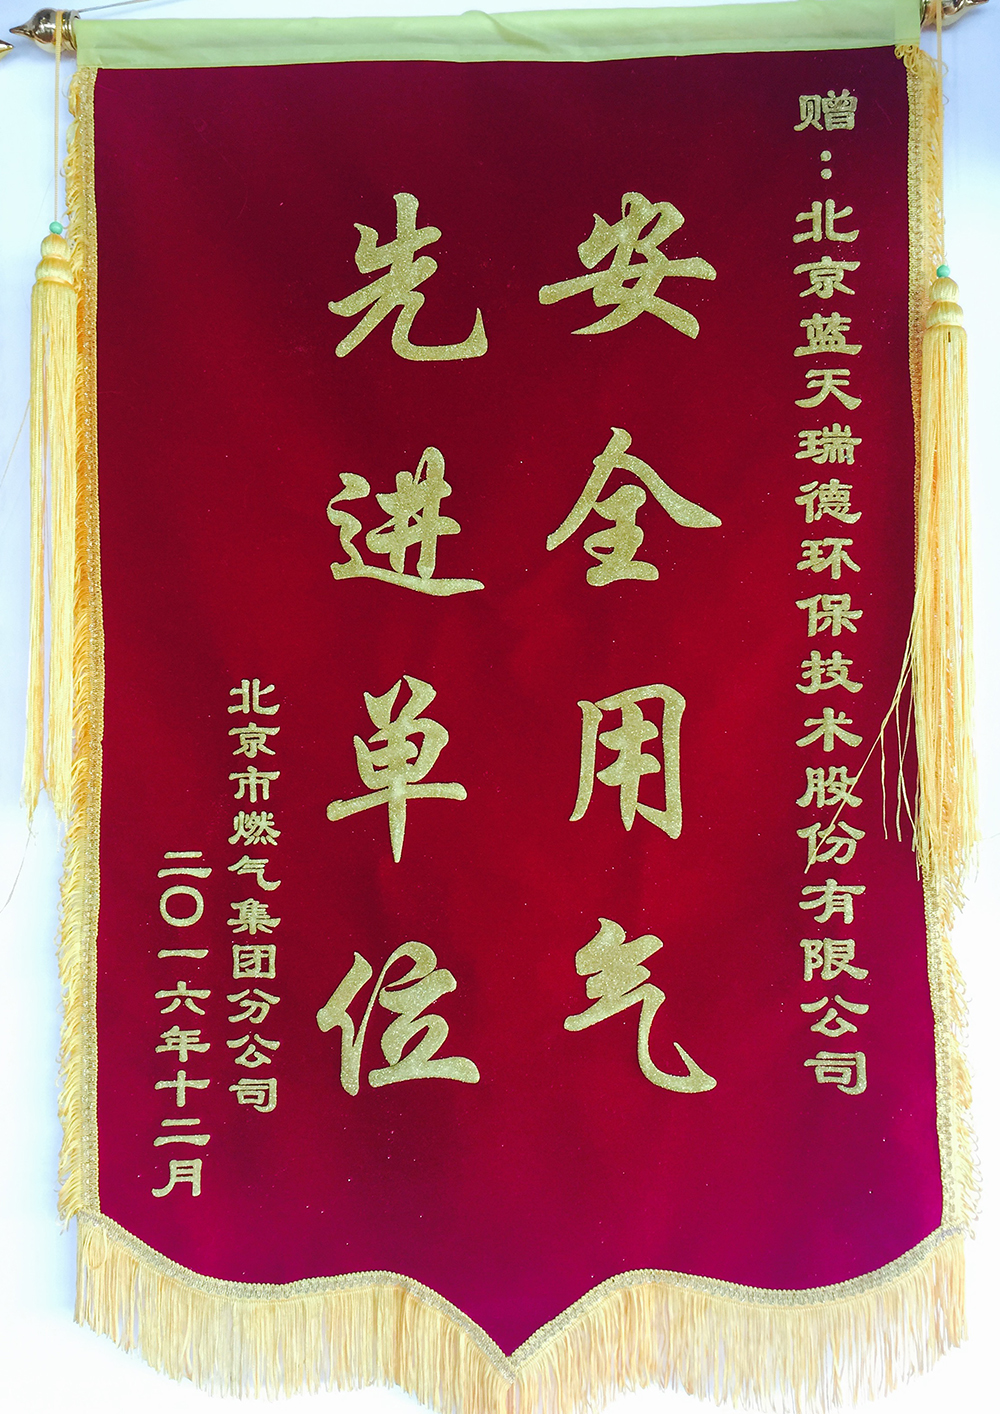 赠：北京蓝天瑞德环保技术股份有限公司
安全用气
先进单位
北京市燃气集团分公司
二〇一六年十二月